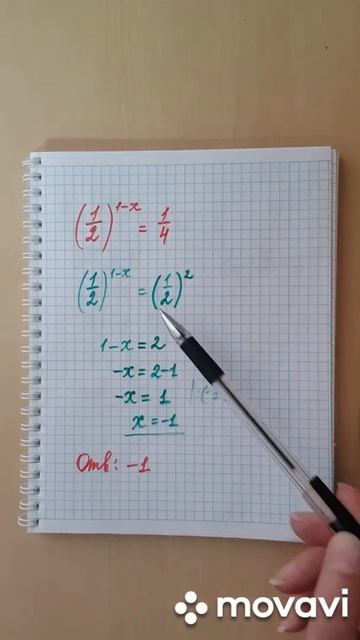 (1/2)^1-x = 1/4
(1/2)^1-x = (1/2)^2
1-x = 2
-x = 2-1
-x = 1
x = -1
Отв: -1
movavi